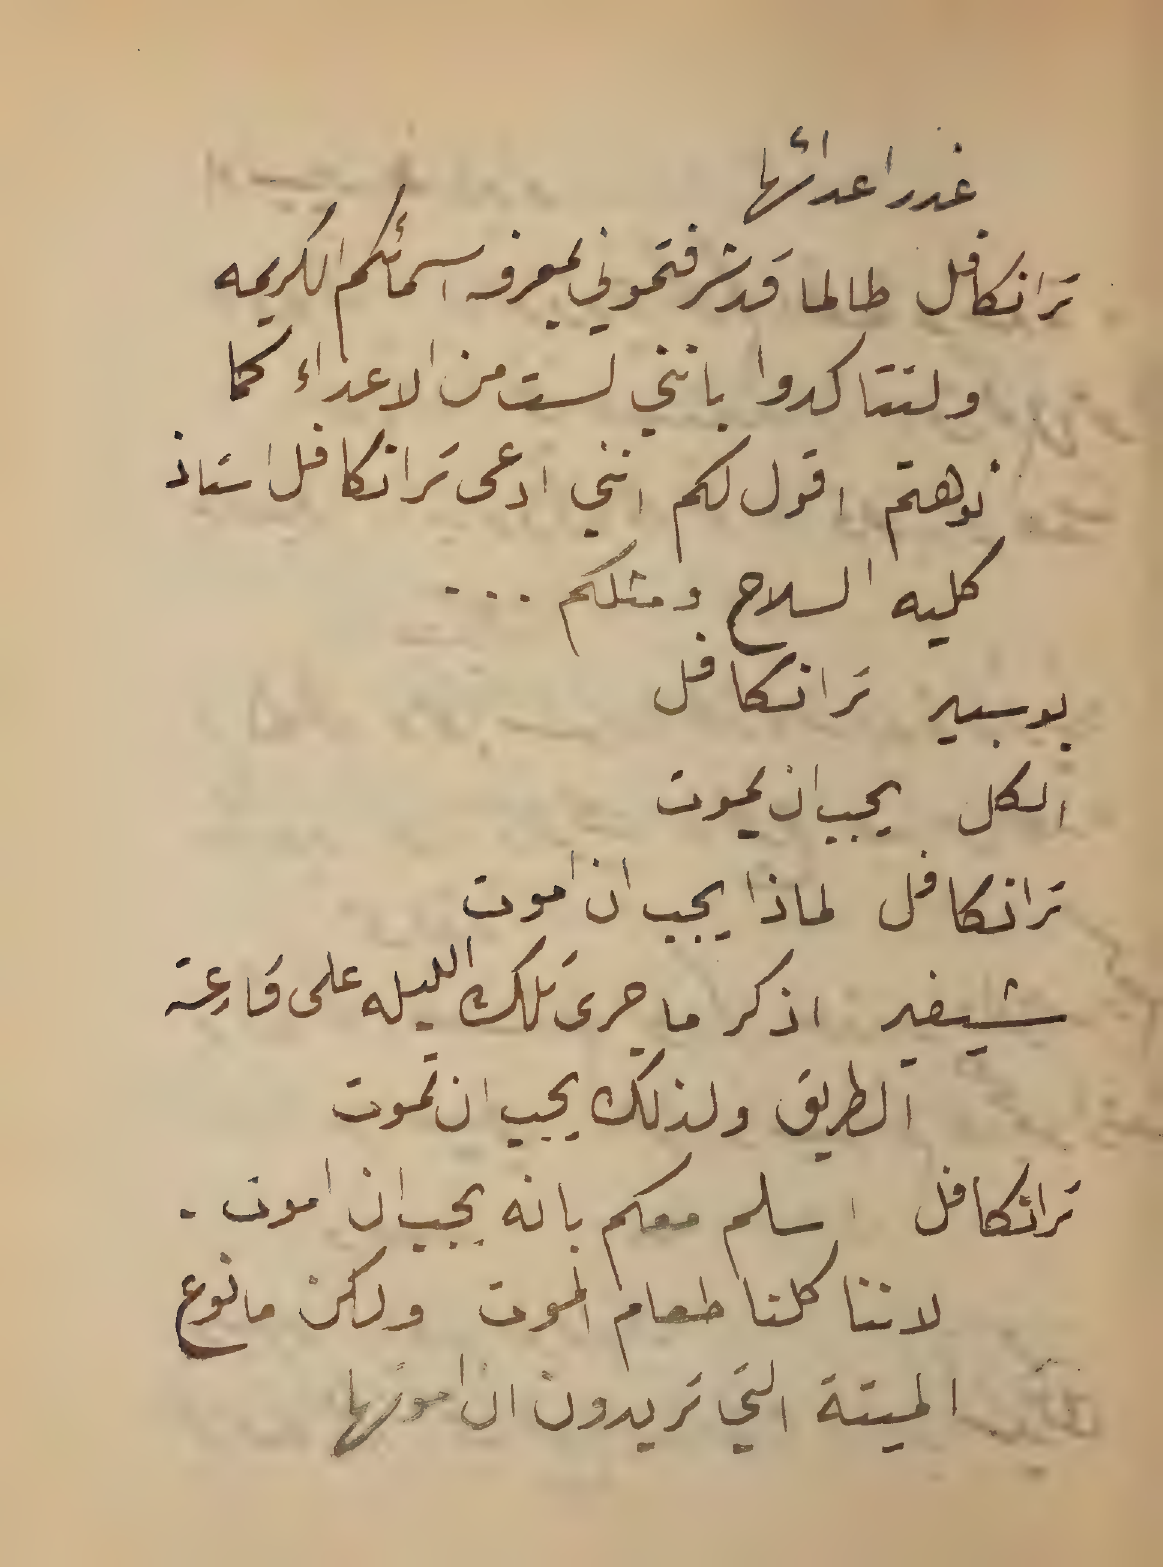 غدر اعدائها
ترانكافل طالما قد شرفتموني بمعرفه اسمائكم الكريمه
ولتتاكدوا بانني لست من الاعداء كما
نوهتم اقول لكم انني ادعى ترانكافل استاذ
كليه السلاح ومثلكم ...
بوسبير ترانكافل
الكل يجب ان يموت
ترانكافل لماذا يجب ان اموت
شيفير اذكر ما جرى تلك الليله على قارعة
الطريق ولذلك يجب ان تموت
ترانكافل اسلم معكم بانه يجب ان اموت .
لاننا كلنا طعام الموت ولكن ما نوع
الميتة التي تريدون ان اموتها